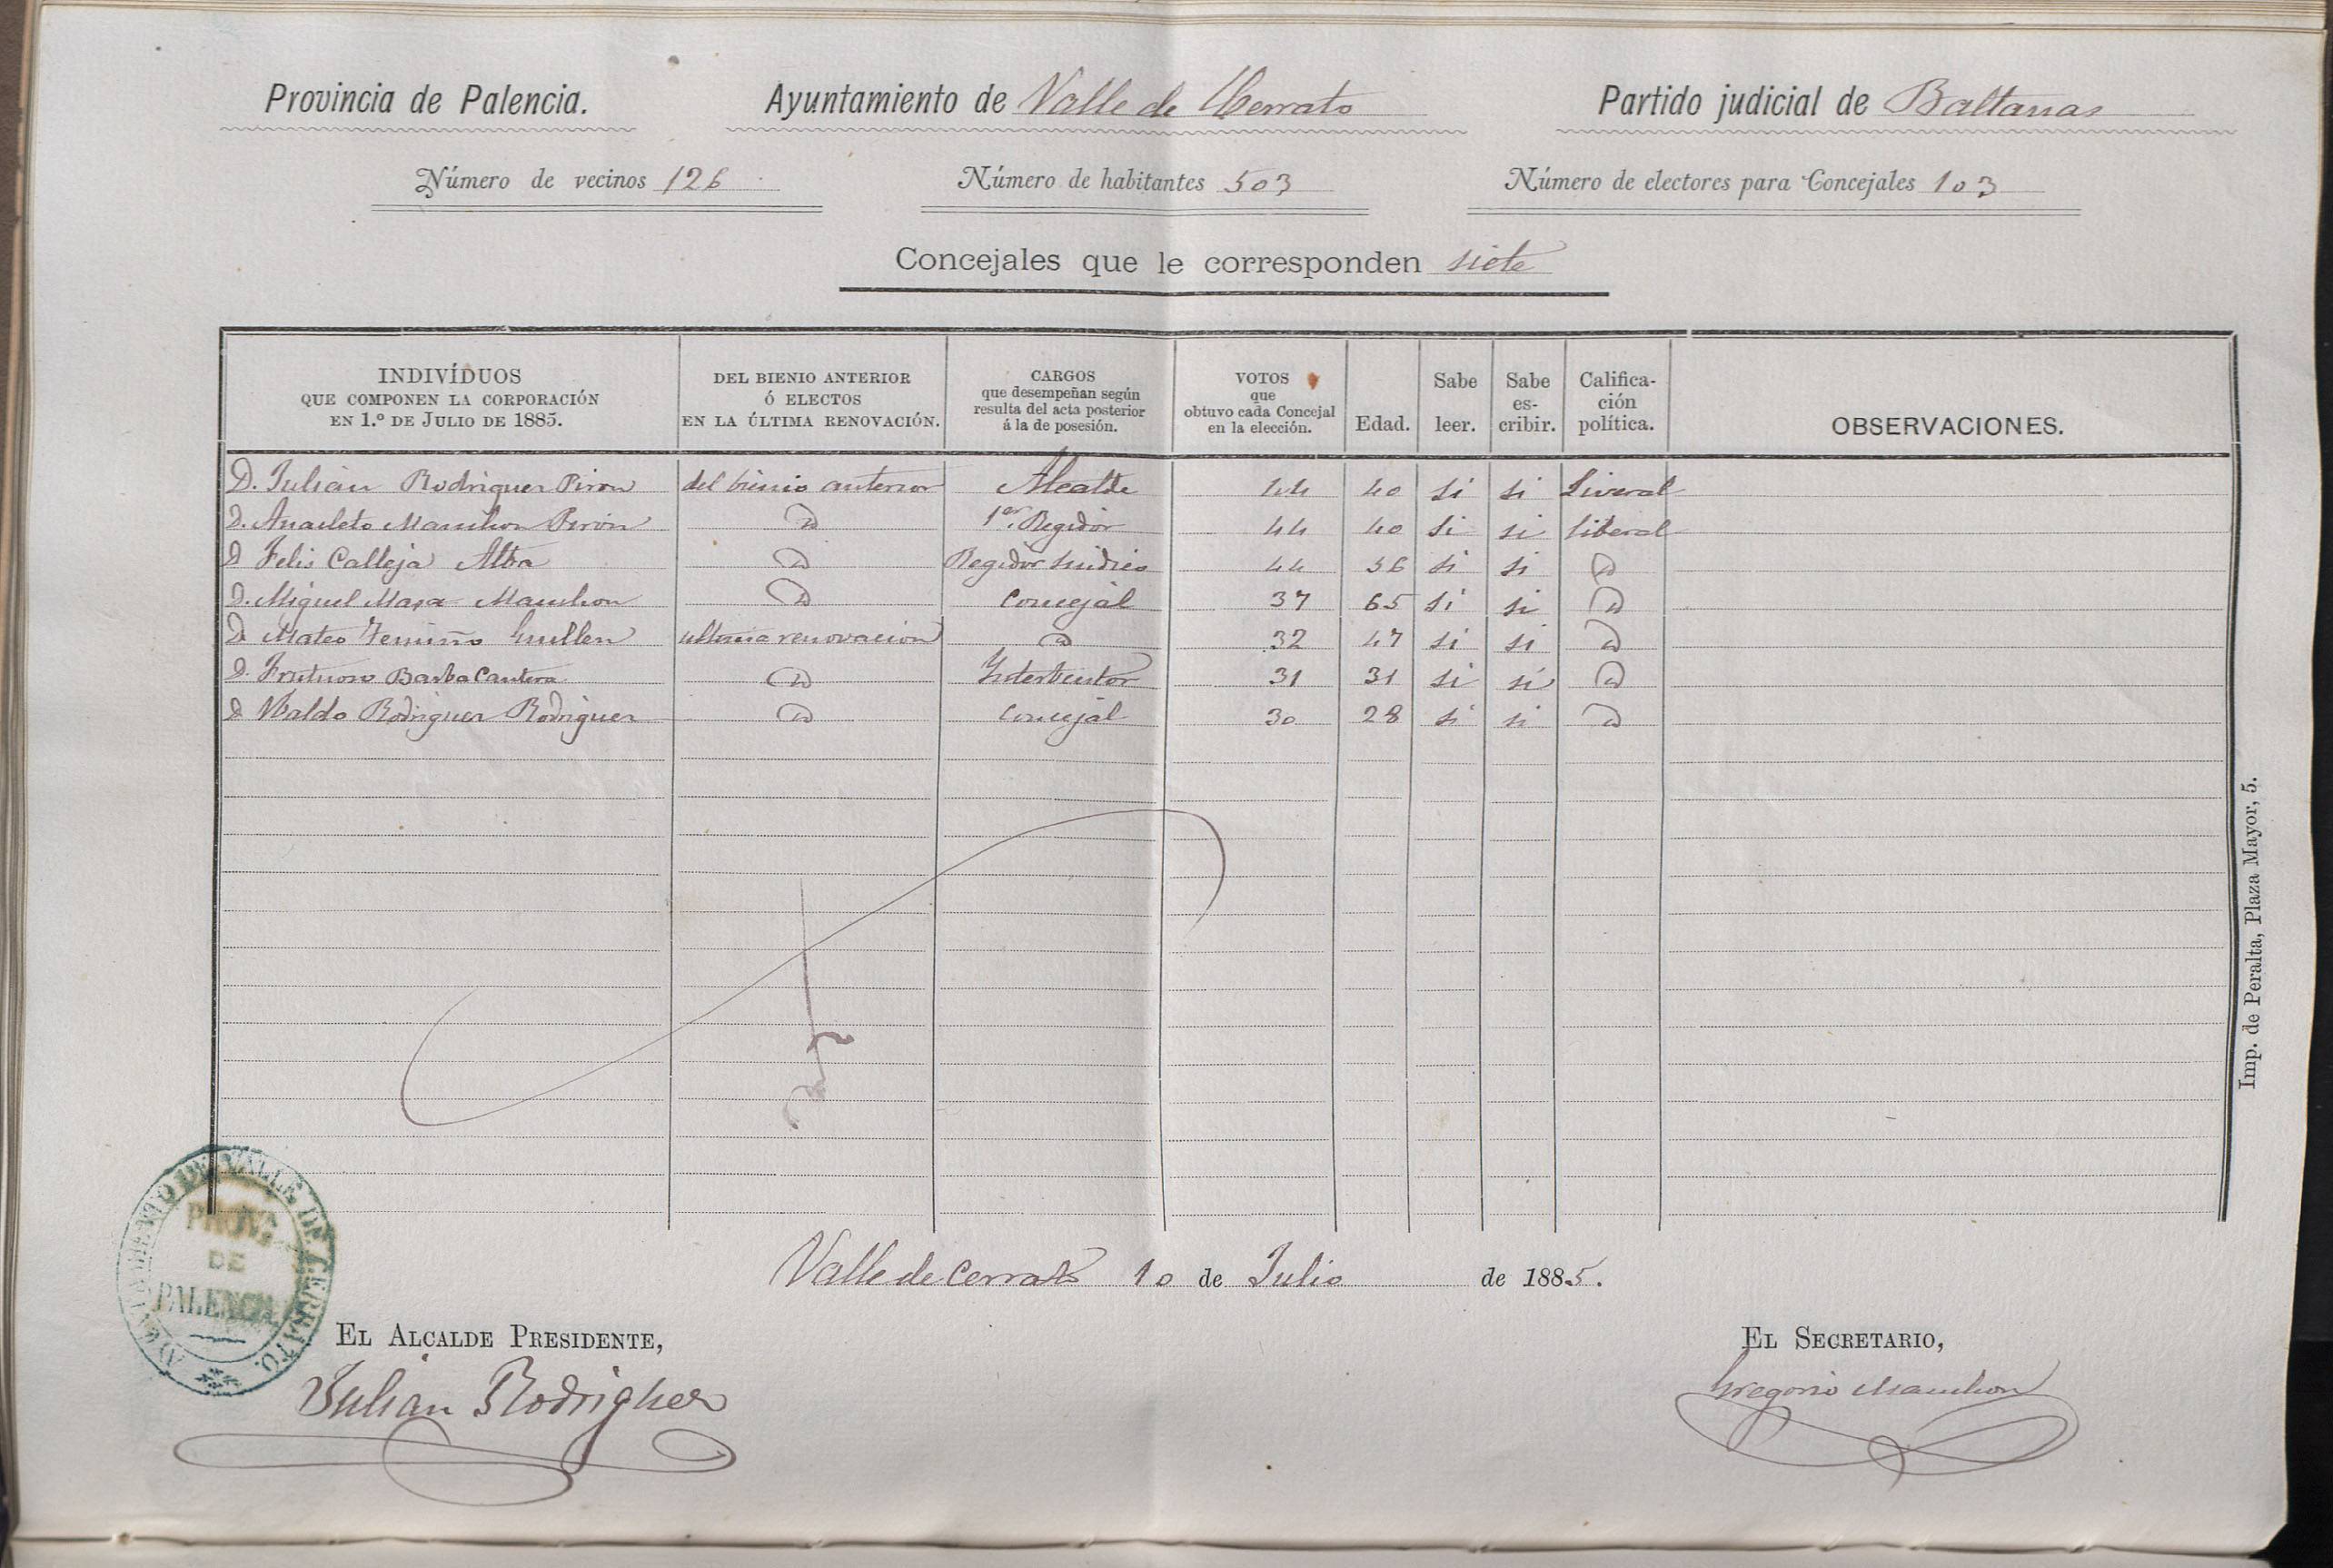 Provincia de Palencia. Ayuntamiento de Valle de Cerrato Partido judicial de Baltanas
Número de vecinos 126 Número de habitantes 503 Número de electores para Concejales 103
Concejales que le corresponden siete
INDIVÍDUOS QUE COMPONEN LA CORPORACIÓN EN 1.º DE JULIO DE 1885.
DEL BIENIO ANTERIOR Ó ELECTOS EN LA ÚLTIMA RENOVACIÓN.
CARGOS que desempeñan según resulta del acta posterior á la de posesión.
VOTOS que obtuvo cada Concejal en la elección.
Edad.
Sabe leer.
Sabe es-cribir.
Califica-ción política.
OBSERVACIONES.
D. Julián Rodriguez Piron del bienio anterior Alcalde 44 40 si si Liveral
D. Anacleto Mauchon Pirón D 1er. Regidor 44 40 si si liberal
D Felis Calleja Alba D Regidor Sindico 44 56 si si D
D. Miguel Masa Mauchon D Concejal 37 65 si si D
D Mateo Guillen ultima renovacion D 32 47 si si D
D. Frutuoso Barba Cantera D Interbentor 31 31 si si D
D Ubaldo Rodriguez Rodriguez D Concejal 30 28 si si D
Valle de Cerrato 10 de Julio de 1885.
AYUNTAMIENTO DE VALLE DE CERRATO.
PROVA.
DE
PALENCIA
EL ALCALDE PRESIDENTE, EL SECRETARIO,
Julian Rodrighez Gregorio Mauchon
Imp. de Peralta, Plaza Mayor, 5.